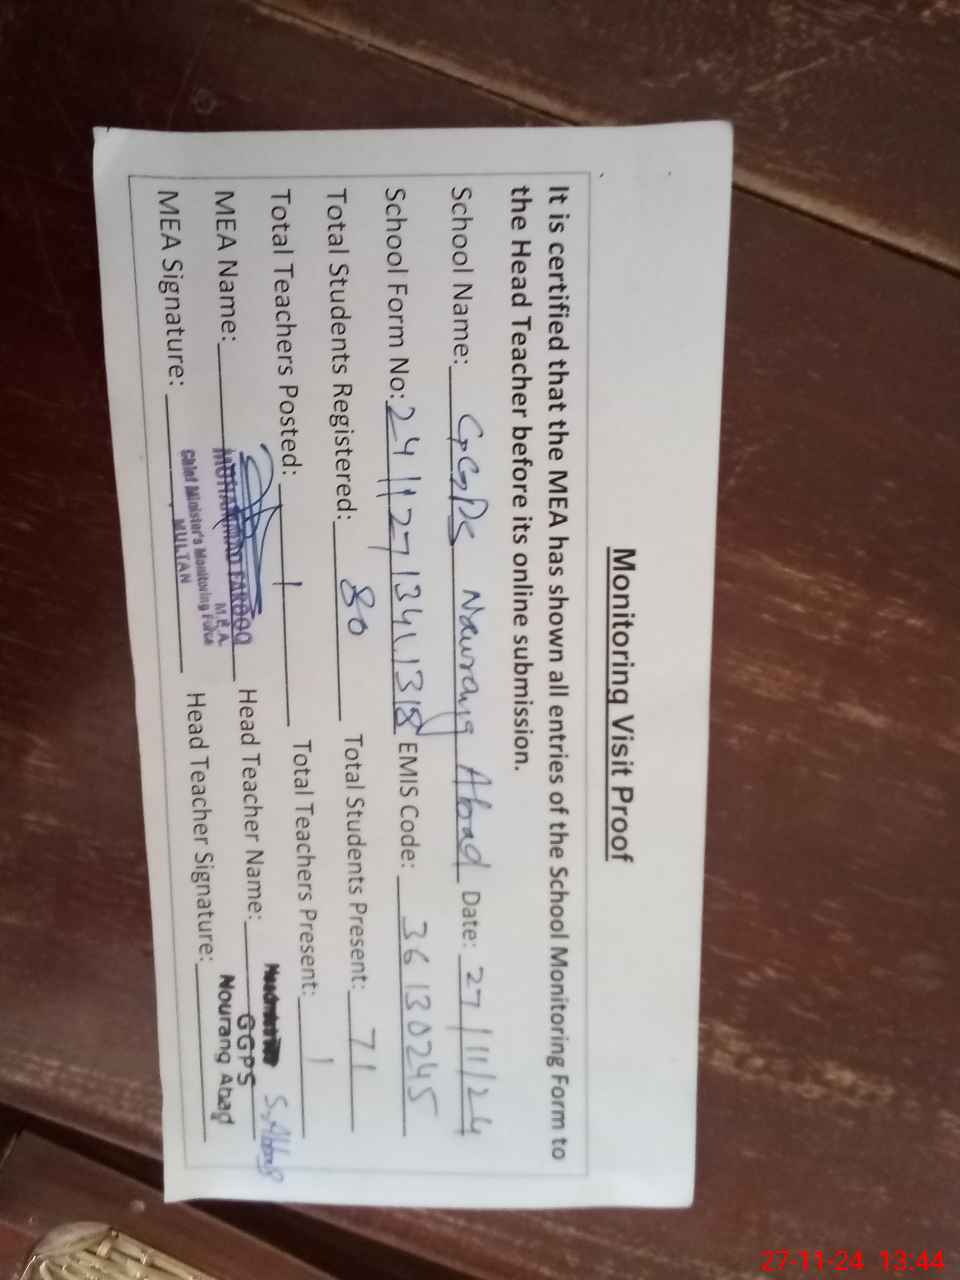 Monitoring Visit Proof
It is certified that the MEA has shown all entries of the School Monitoring Form to
the Head Teacher before its online submission.
School Name: GGPS Nawrang Abad Date: 27/11/24
School Form No: EMIS Code: 36130245
Total Students Registered: 80 Total Students Present: 71
Total Teachers Posted: 1 Total Teachers Present: 1
MEA Name: MUHAMMAD FAROOQ Head Teacher Name:
M.E.A.
Chief Minister's Monitoring Force
MULTAN
MEA Signature: Head Teacher Signature:
Headmistress
GGPS
Nourang Abad
27-11-24 13:44